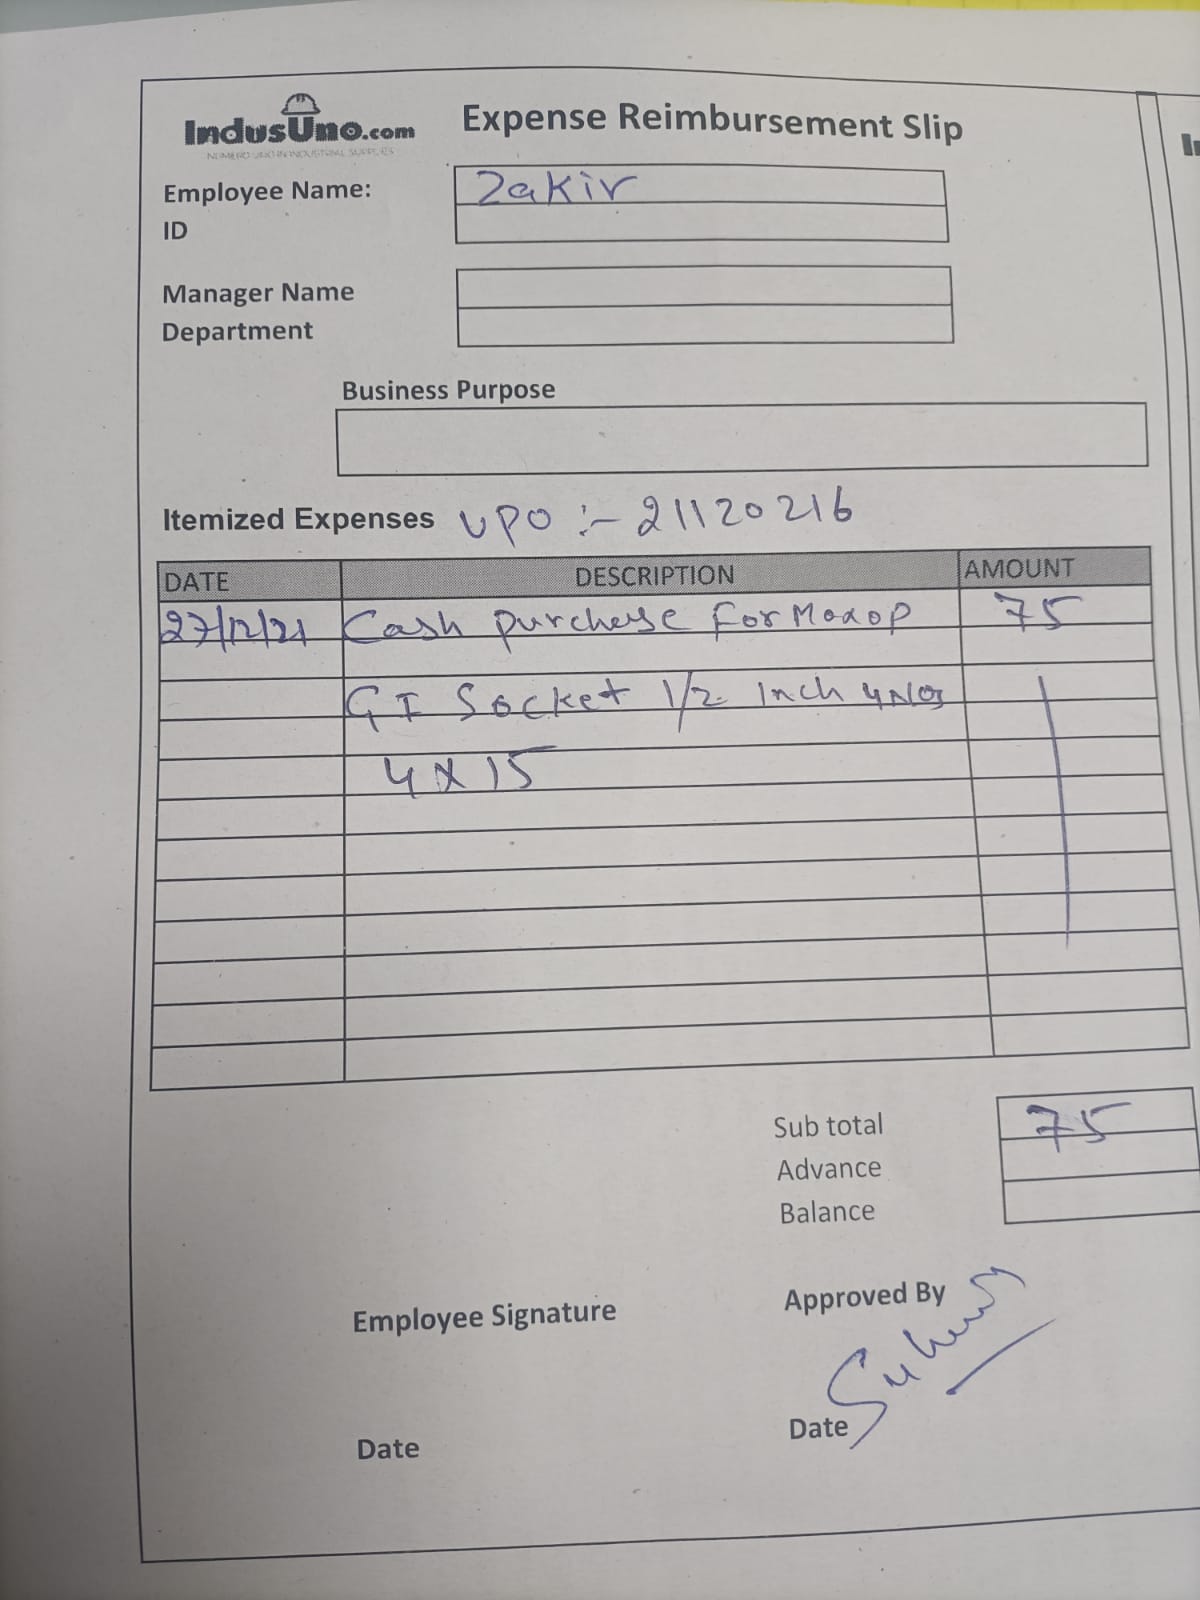 IndusUno.com
NUMERO UNO IN INDUSTRIAL SUPPLIES
Expense Reimbursement Slip
Employee Name: Zakir
ID
Manager Name
Department
Business Purpose
Itemized Expenses UPO :- 21120216
DATE DESCRIPTION AMOUNT
27/12/21 Cash purchase For 75
GI Socket 1/2 Inch 4Nos
4 X 15
Sub total 75
Advance
Balance
Employee Signature
Approved By
Date
Date